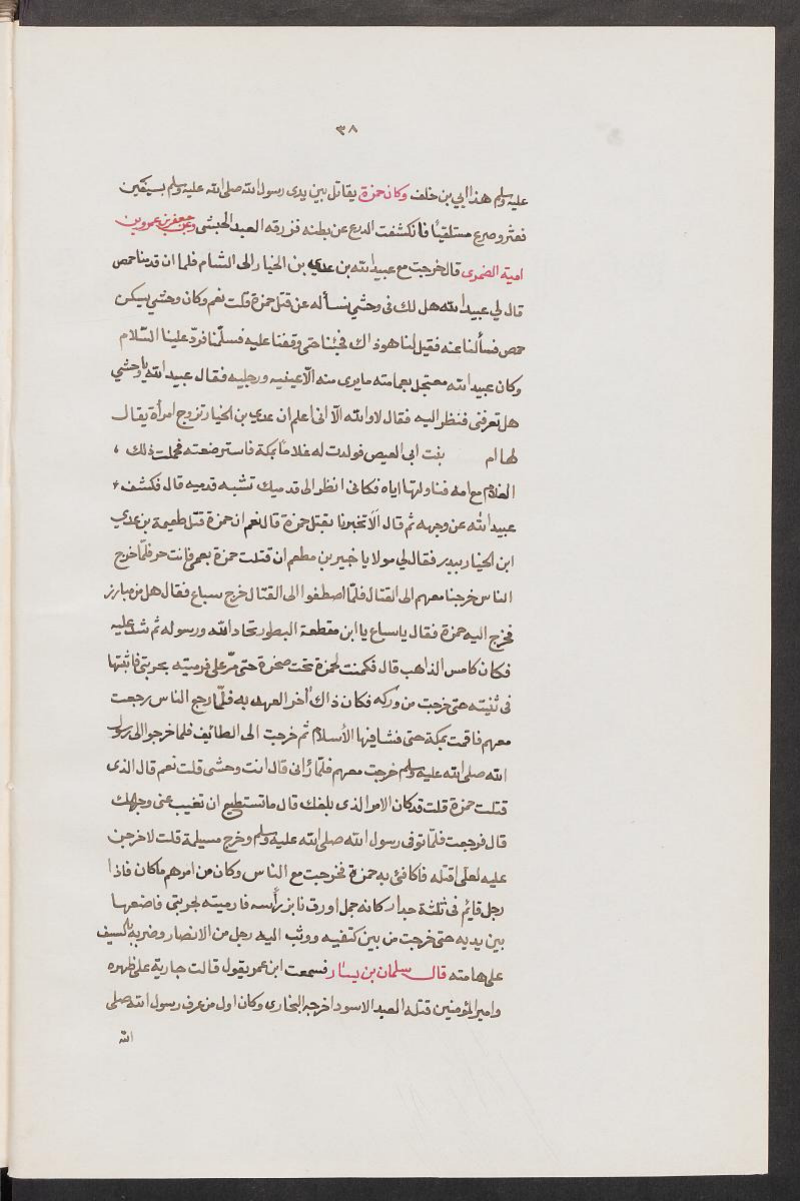 ٣٨
عليه وسلم هذا ابي بن خلف وكان حمزة يقاتل بين يدى رسول الله صلى الله عليه وسلم بسيفين
فعثر وصرع مستلقيا فانكشفت الدرع عن بطنه فزرقه العبد الحبشى وعن جعفر بن عمرو بن
امية الضمرى قال خرجت مع عبيد الله بن عدي بن الخيار الى الشام فلما ان قدمنا حمص
قال لي عبيد الله هل لك فى وحشي نسأله عن قتل حمزة قلت نعم وكان وحشي يسكن
حمص فسألنا عنه فقيل لنا هو ذاك فجئنا حتى وقفنا عليه فسلّمنا فردّ علينا السّلام
وكان عبيد الله معتجل بعمامته ما يرى منه الّا عينيه ورجليه فقال عبيد الله يا وحشي
هل تعرفنى فنظر اليه فقال لا والله الّا انى اعلم ان عدي بن الخيار تزوج امرأة يقال
لها ام بنت ابى العيص فولدت له غلامًا بمكة فاسترضعته فحملت ذلك
الغلام مع امه فناولتها اياه فكانى انظر الى قدميك تشبه قدميه قال فكشف
عبيد الله عن وجهه ثم قال الَا تخبرنا بقتل حمزة قال نعم ان حمزة قتل طعيمة بن عدي
ابن الخيار ببدر فقال لي مولايا جبير بن مطعم ان قتلت حمزة بعمى فانت حر فلمّا خرج
الناس خرجنا معهم الى القتال فلمّا اصطفوا الى القتال خرج سباع فقال هل من مبارز
فخرج اليه حمزة فقال يا سباع يا ابن مقطعة البطور تحاد الله ورسوله ثم شد عليه
فكان كامس الذاهب قال فكمنت لحمزة تحت صخرة حتى مرّ على فرميته بحربتى فاثبتها
فى ثنيته حتى خرجت من وركه فكان ذاك آخر العهد به فلمّا رجع الناس رجعت
معهم فاقمت بمكة حتى فشا فيها الأسلام ثم خرجت الى الطائف فلما خرجوا الى رسول
الله صلى الله عليه وسلم خرجت معهم فلمّا رانى قال انت وحشى قلت نعم قال الذى
قتلت حمزة قلت قد كان الامر الذى بلغك قال ما تستطيع ان تغيب عنى وجهك
قال فرجعت فلمّا توفى رسول الله صلى الله عليه وسلم وخرج مسيلمة قلت لاخرجن
عليه لعلى اقتله فاكافئ به حمزة فخرجت مع الناس وكان من امرهم ما كان فاذا
رجل قايم فى ثلثة جدار كانه جمل اورق نابز رأسه فارميته بحربتى فاضعها
بين يديه حتى خرجت من بين كتفيه ووثب اليه رجل من الانصار وضربه بالسيف
على هامته قال سلمان بن يسار فسمعت ابن عمر يقول قالت جارية على ظهره
وامير المؤمنين قتله العبد الاسود اخرجه البخارى وكان اول من عرف رسول الله صلى
الله